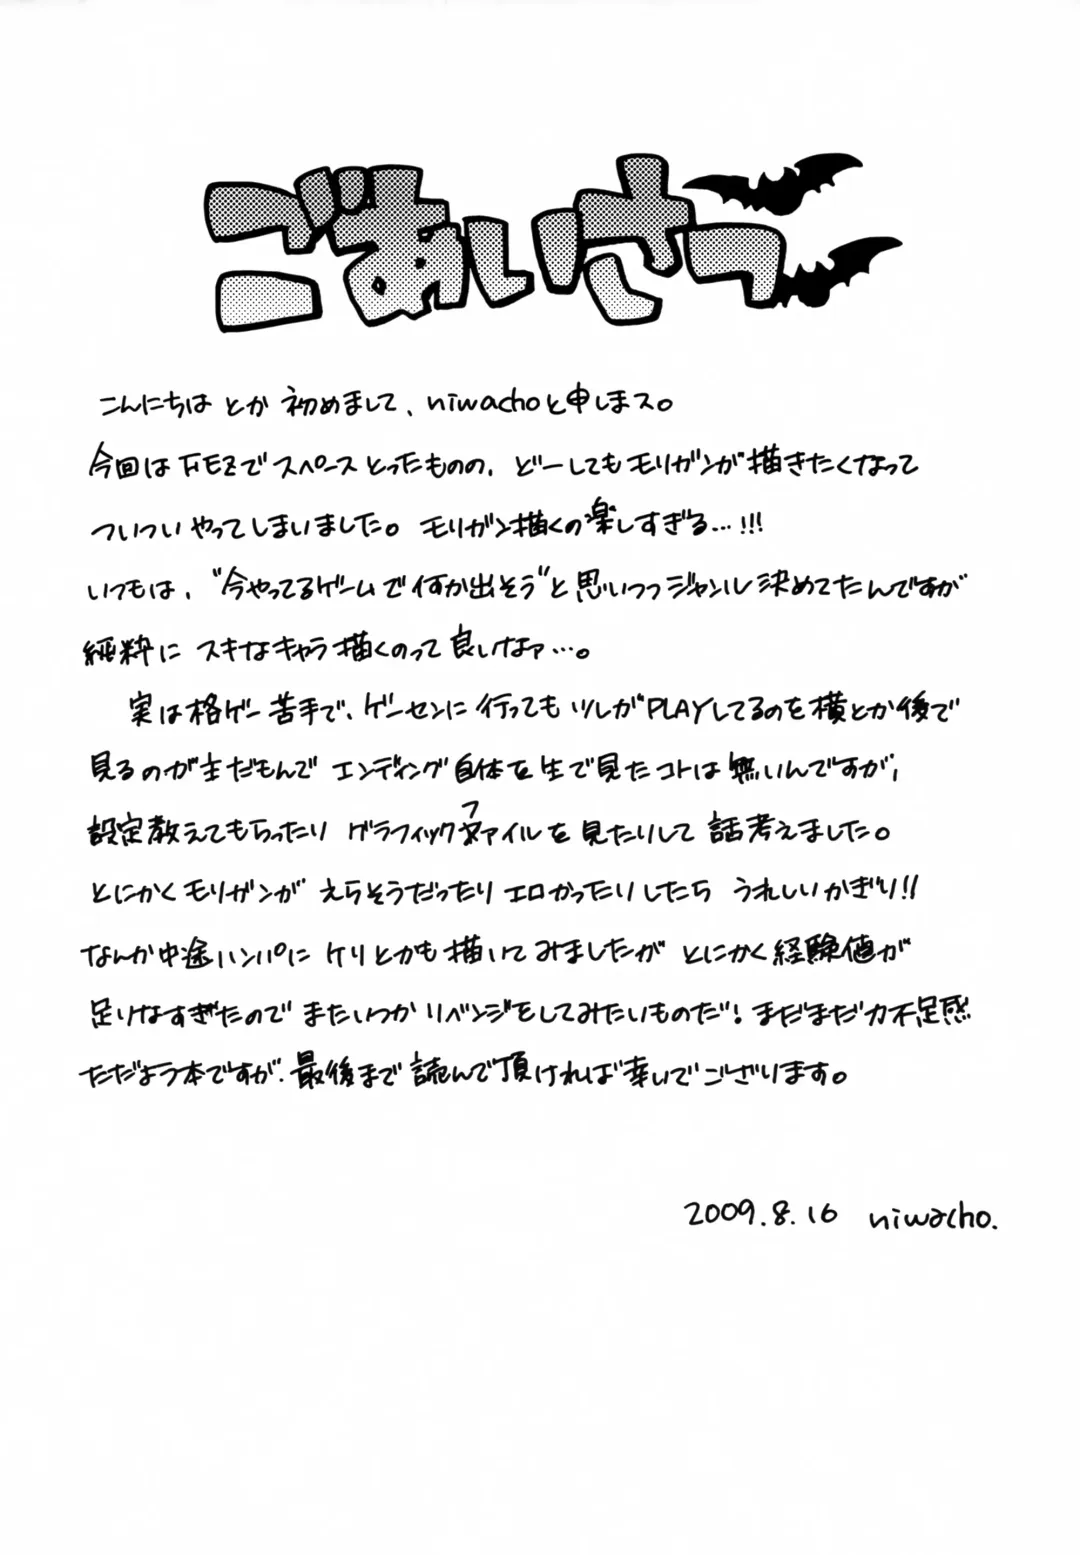 ごあいさつ
こんにちは とか 初めまして、niwachoと申しまス。
今回は FEZで スペースとったものの、どーしても モリガンが 描きたくなって
ついつい やってしまいました。 モリガン描くの楽しすぎる…!!!
いつもは、“今やってるゲームで 何か出そう”と 思いつつ ジャンル 決めてたんですが
純粋に スキなキャラ 描くのって 良いなァ…。
実は格ゲー 苦手で、ゲーセンに 行っても ツレが PLAYしてるのを 横とか後で
見るのが主だもんで エンディング 自体を 生で見たコトは 無いんですが、
設定教えてもらったり グラフィックファイルを 見たりして 話考えました。
とにかくモリガンが えらそうだったり エロかったりしたら うれしいかぎり!!
なんか中途ハンパに ケリとかも 描いてみましたが とにかく経験値が
足りなすぎたので またいつか リベンジをしてみたいものだ! まだまだ力不足感
ただよう本ですが、最後まで 読んで 頂ければ 幸いでございます。
2009.8.16 niwacho.